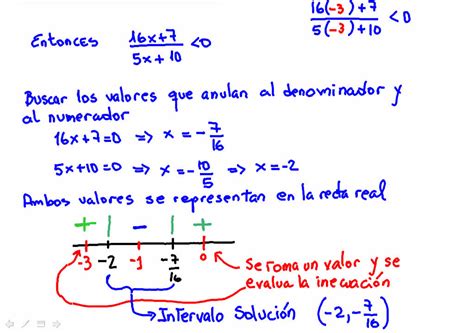 16(-3)+7 / 5(-3)+10 <0
Entonces 16x+7 / 5x+10 <0
Buscar los valores que anulan al denominador y
al numerador
16x+7=0 => x = -7/16
5x+10=0 => x = -10/5 => x = -2
Ambos valores se representan en la recta real
+ | - | +
-3 -2 -1 -7/16 0
Se toma un valor y se
evalua la inecuación
Intervalo Solución (-2, -7/16)